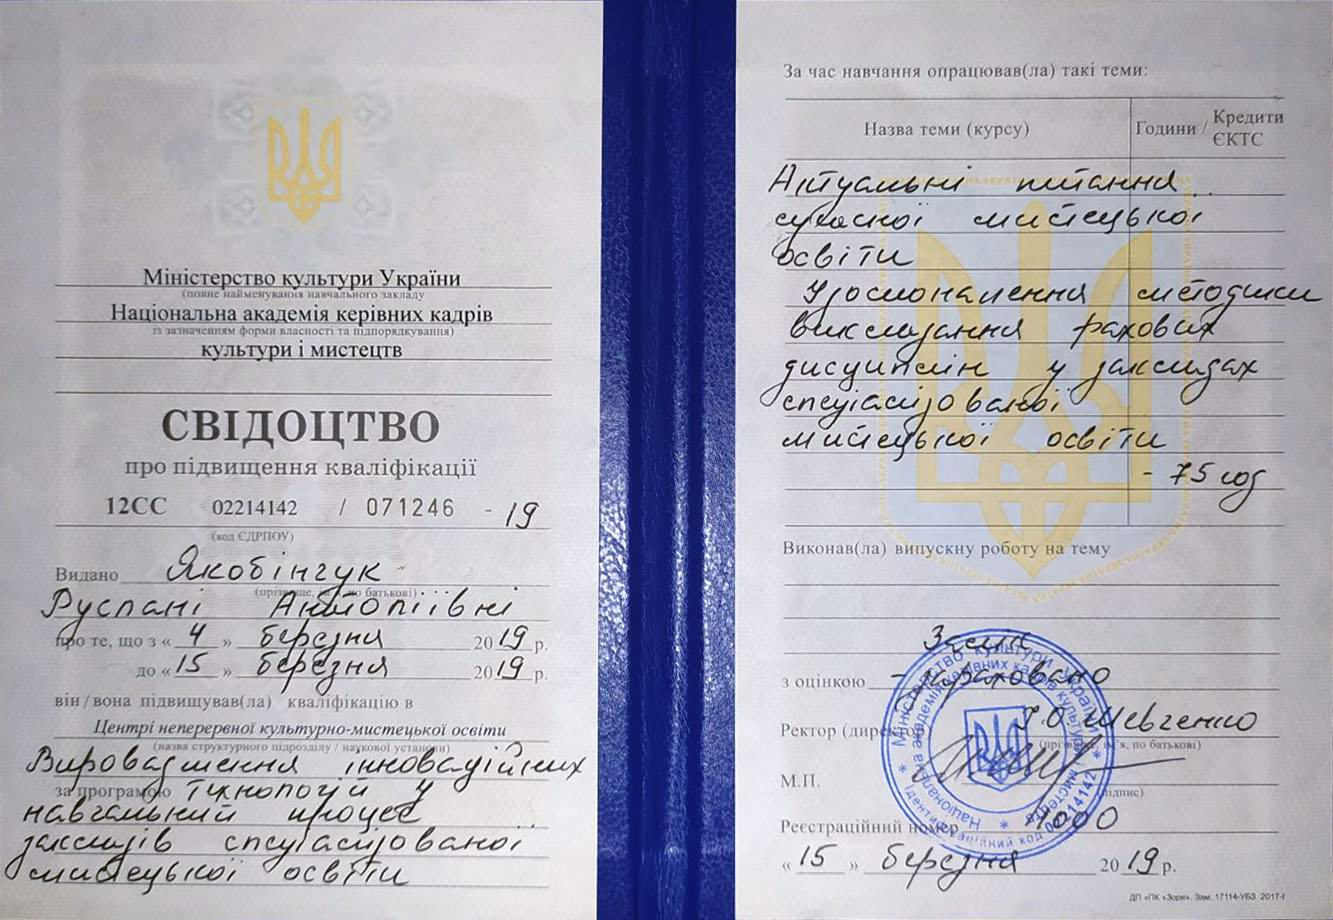 Міністерство культури України
(повне найменування навчального закладу
Національна академія керівних кадрів
із зазначенням форми власності та підпорядкування)
культури і мистецтв
СВІДОЦТВО
про підвищення кваліфікації
12СС 02214142 / 071246 - 19
(код ЄДРПОУ)
Видано Якобінчук
(прізвище, ім'я, по батькові)
Руслані Анатоліївні
про те, що з « 4 » березня 2019 р.
до « 15 » березня 2019 р.
він / вона підвищував(ла) кваліфікацію в
Центрі неперервної культурно-мистецької освіти
(назва структурного підрозділу / наукової установи)
Впровадження інноваційних
за програмою технологій у
навчальний процес
закладів спеціалізованої
мистецької освіти
За час навчання опрацював(ла) такі теми:
Назва теми (курсу) Години / Кредити ЄКТС
Актуальні питання
сучасної мистецької
освіти
Удосконалення методики
викладання фахових
дисциплін у закладах
спеціалізованої
мистецької освіти
- 75 год
Виконав(ла) випускну роботу на тему
з оцінкою - зараховано
Ректор (директор) Шевченко
(прізвище, ім'я, по батькові)
М.П. (підпис)
Реєстраційний номер 1000
« 15 » березня 2019 р.
Міністерство культури України
Національна академія керівних кадрів культури і мистецтв
Ідентифікаційний код 02214142
ДП «ПК «Зоря». Зам. 17114-УБЗ. 2017-І